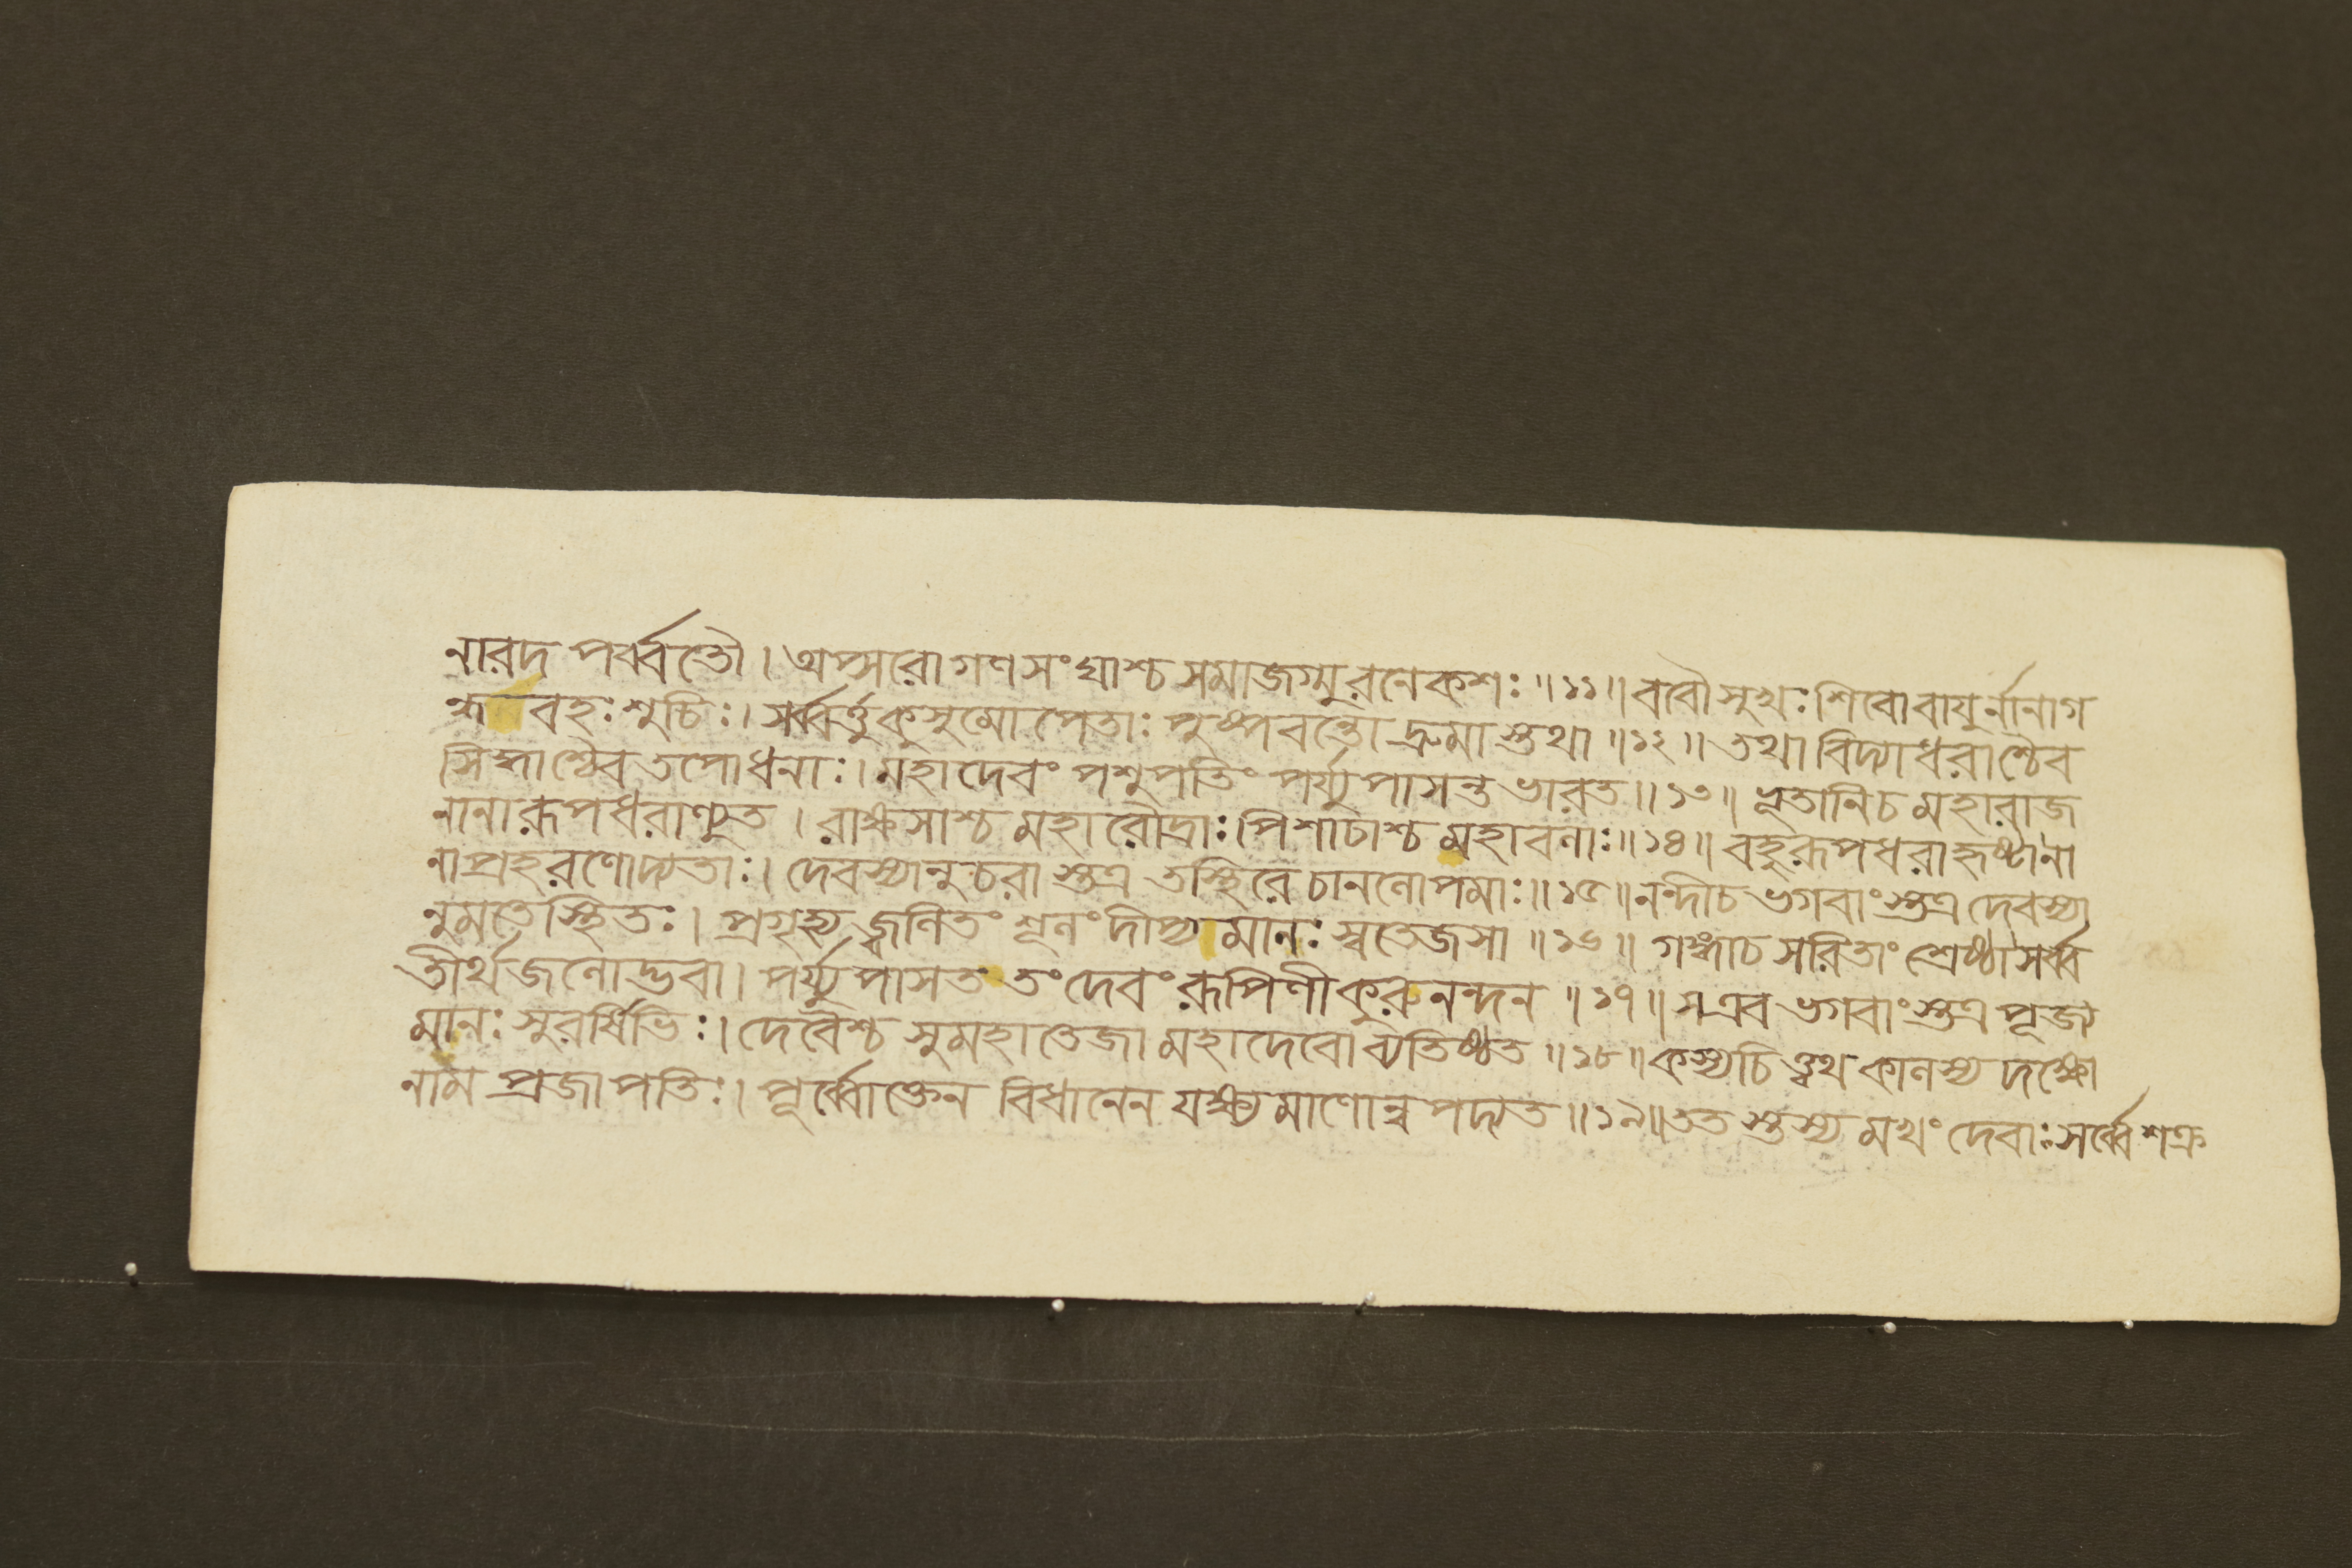 নারদ পর্ব্বতৌ । অপ্সরোগণসংঘাশ্চ সমাজগ্মুরনেকশঃ ॥১১॥ ববৌসুখঃ শিবোবায়ুর্নানাগ
ন্ধবহঃ শুচিঃ । সর্ব্বর্ত্তুকুসুমোপেতাঃ পুষ্পবন্তো দ্রুমাস্তথা ॥১২॥ তথা বিদ্যাধরাশ্চৈব
সিদ্ধাশ্চৈব তপোধনাঃ । মহাদেবং পশুপতিং পর্য্যুপাসন্ত ভারত ॥১৩॥ ভূতানিচ মহারাজ
নানারূপধরাণ্যুত । রাক্ষসাশ্চ মহারৌদ্রাঃ । পিশাচাশ্চ মহাবলাঃ ॥১৪॥ বহুরূপধরাহৃষ্টানা
নাপ্রহরণোদ্যতাঃ । দেবস্যানুচরাস্তত্র তস্থিরে চানলোপমাঃ ॥১৫॥ নন্দীচ ভগবাংস্তত্র দেবস্যা
নুমতেস্থিতঃ । প্রগৃহ্য জ্বলিতং শূলং দীপ্যমানঃ স্বতেজসা ॥১৬॥ গঙ্গাচ সরিতাং শ্রেষ্ঠা সর্ব্ব
তীর্থজলোদ্ভবা । পর্য্যুপাসত তং দেবং রূপিণী কুরুনন্দন ॥১৭॥ সএব ভগবাংস্তত্র পূজ্য
মানঃ সুরর্ষিভিঃ । দেবৈশ্চ সুমহাতেজা মহাদেবো ব্যতিষ্ঠত ॥১৮॥ কস্যচিত্ত্বথ কালস্য দক্ষো
নাম প্রজাপতিঃ । পূর্ব্বোক্তেন বিধানেন যক্ষ্যমাণোন্বপদ্যত ॥১৯॥ ততস্তস্য মখং দেবাঃ সর্ব্বে শক্র